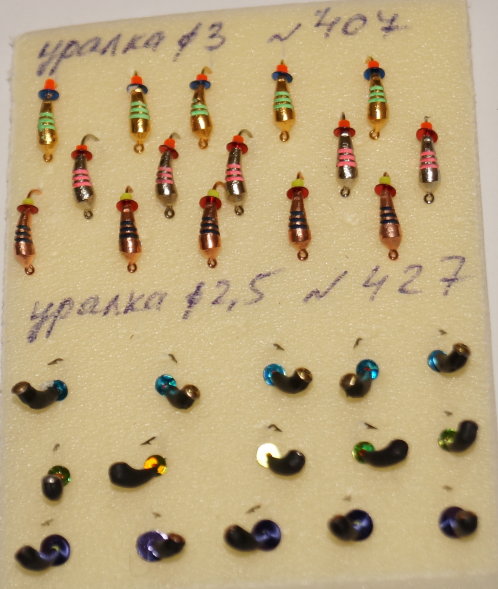 уралка ϕ3 № 407
уралка ϕ2,5 № 427